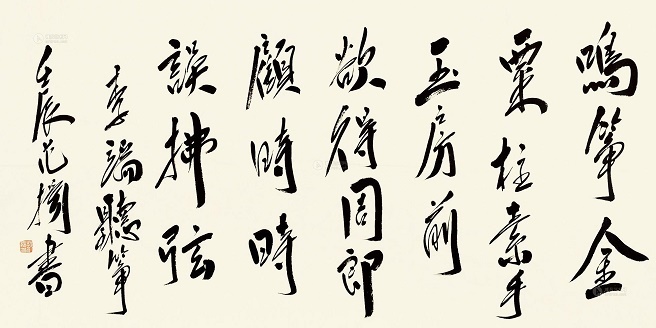 鳴箏金
粟柱素手
玉房前
欲得周郎
顧時時
誤拂弦
李端聽箏
壬辰范書